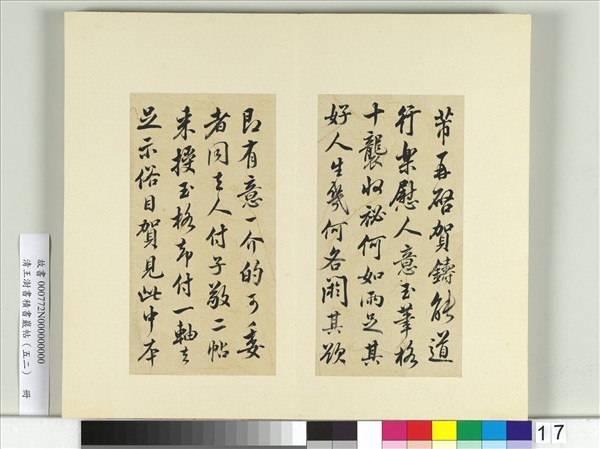 芾再啓賀鑄能道
行樂慰人意玉筆格
十襲收祕何如兩足其
好人生幾何各閼其欲
即有意一介的可委
者同去人付子敬二帖
來授玉格却付一軸去
足示俗目賀見此中本
故書 000772N000000000
清王澍書積書巖帖(五二) 冊
17